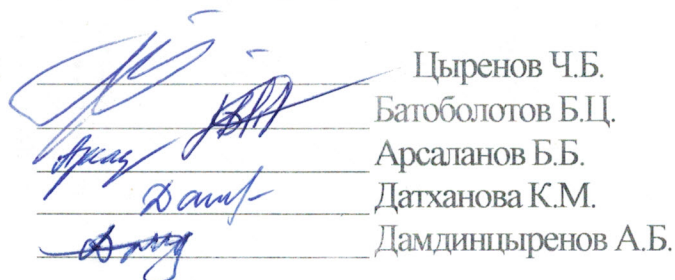 Цыренов Ч.Б.
Батоболотов Б.Ц.
Арсаланов Б.Б.
Датханова К.М.
Дамдинцыренов А.Б.